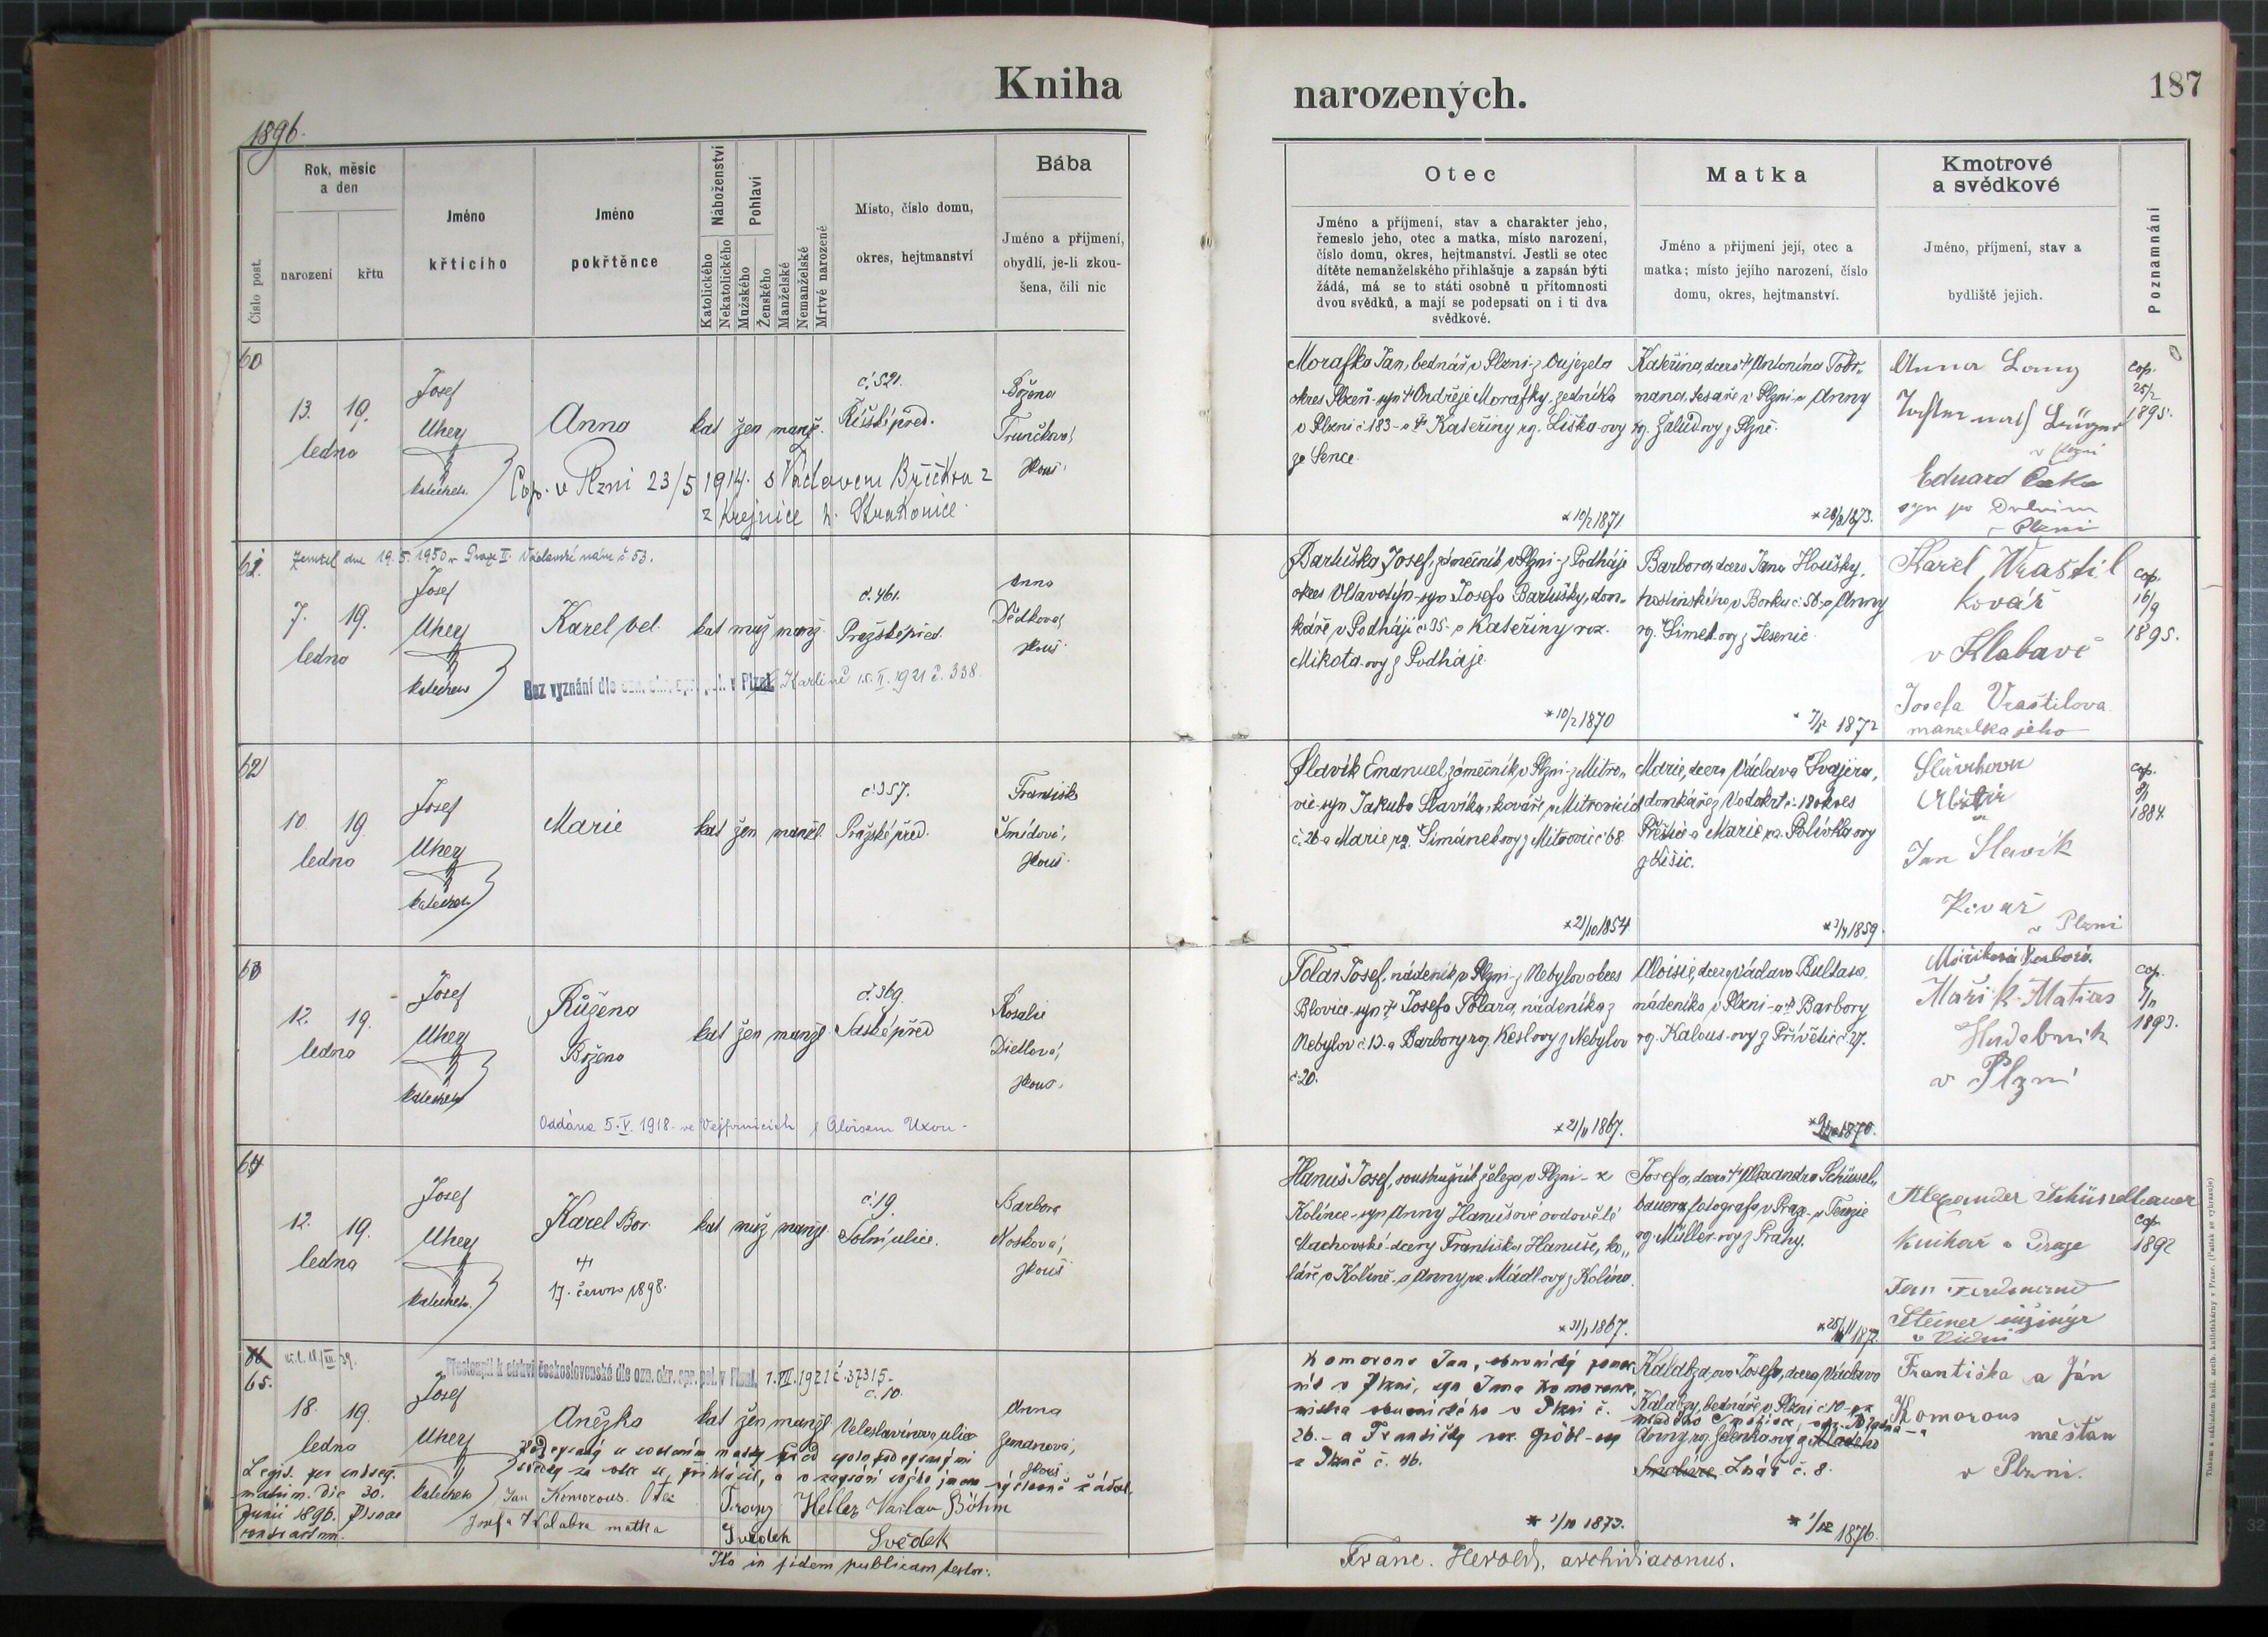 Kniha
narozených.
187
1896.
Číslo post.
Rok, měsíc
a den
narození
křtu
Jméno
křtícího
Jméno
pokřtěnce
Náboženství
Katolického
Nekatolického
Pohlaví
Mužského
Ženského
Manželské
Nemanželské
Mrtvé narozené
Místo, číslo domu,
okres, hejtmanství
Bába
Jméno a příjmení,
obydlí, je-li zkou-
šena, čili nic
Otec
Jméno a příjmení, stav a charakter jeho,
řemeslo jeho, otec a matka, místo narození,
číslo domu, okres, hejtmanství. Jestli se otec
dítěte nemanželského přihlašuje a zapsán býti
žádá, má se to státi osobně u přítomnosti
dvou svědků, a mají se podepsati on i ti dva
svědkové.
Matka
Jméno a přijmení její, otec a
matka; místo jejího narození, číslo
domu, okres, hejtmanství.
Kmotrové
a svědkové
Jméno, příjmení, stav a
bydliště jejich.
Poznamnání
60
13. 19.
ledna
Josef
Uher
katecheta
Anna
kat žen manž.
č. 521.
Říšské před.
Božena
Trunčková
zkouš.
Cop. v Plzni 23/5 1914. s Václavem Břičkou z
z Krejnice h. Strakonice.
Morafka Jan, bednář v Plzni z Oujezda
okres Plzeň - syn † Ondřeje Morafky, zedníka
v Plzni č. 183 - a † Kateřiny rz. Liška-ovy
ze Sence.
* 10/2 1871
Kateřina, dcera † Antonína
tesaře v Plzni a Anny
rz. Žalud-ovy z Plzně.
1873.
Anna Lang
v Plzni
Eduard
Plzni
cop.
25/2
1895.
61.
Zemřel dne 19. 5. 1950 v Praze II. Václavské nám č. 53.
7. 19.
ledna
Josef
Uher
katecheta
Karel vel.
kat muž manž.
č. 461.
Pražské před.
Anna
Dědková
zkouš.
Bez vyznání dle ozn. okr. spr. pol. v Plzni. Karlíně 15. II. 1921 č. 338.
Bartuška Josef, zámečník v Plzni - z Podháje
okres Vltavotýn - syn Josefa Bartušky, dom-
káře v Podháji č. 35 - a Kateřiny roz.
Mikota-ovy z Podháje.
* 10/2 1870
Barbora, dcera Jana Houšky,
hostinského v Borku č. 50 - a Anny
rz. Šimek-ovy z Jesenic.
1872
Karel Vraštil
kovář
v Klabavě
Josefa Vraštilova
manzelka jeho
cop.
16/9
1895.
62
10 19.
ledna
Josef
Uher
katecheta
Marie
kat žen manžel.
č. 357.
Pražské před.
Františka
Šmídová,
zkouš.
Slavík Emanuel, zámečník v Plzni - z Mitro-
vic - syn Jakuba Slavíka, kováře v Mitrovicích
č. 26 - a Marie rz. Šimánek-ovy z Mitrovic č. 68.
* 21/10 1854
Marie, dcera Václava Švajcra,
domkáře z Vodokrt č. 18 okres
Přeštic a Marie rz. Polívka-ovy
z Lišic.
1859.
Jan Slavík
Kovář
v Plzni
cop.
1884.
63
12. 19.
ledna
Josef
Uher
katecheta
Růžena
Božena
kat žen manžel.
č. 369.
Saské před
Rosalie
Dietlová,
zkouš.
Oddána 5. V. 1918. ve Vejprnicích s Aloisem Uxou.
Tolar Josef, nádeník v Plzni - z Nebylov okres
Blovice - syn † Josefa Tolara, nádeníka z
Nebylov č. 13. a Barbory rz. Kesl-ovy z Nebylov
č. 20.
* 21/11 1867.
Aloisie, dcera Václava Bultasa,
nádeníka v Plzni - a † Barbory
rz. Kalous-ovy z Přívětic č. 27.
1870.
Maříková Barbora.
Mařík Matias
Hudebník
v Plzni
cop.
1893.
64
12. 19.
ledna
Josef
Uher
katecheta
Karel Bor.
†
17. června 1898.
kat muž manžel
č. 19.
Solní ulice.
Barbora
Nosková,
zkouš.
Hanuš Josef, soustružník železa v Plzni - z
Kolínce - syn Anny Hanušové ovdovělé
Machovské - dcery Františka Hanuše, ko-
láře v Kolíně - a Anny rz. Mádl-ovy z Kolína.
* 31/1 1867.
Josefa, dcera † Alexandra Schüssel-
bauera, fotografa v Praze - a Terezie
rz. Müller-ovy z Prahy.
1872.
Alexander Schüsselbauer
knihař v Praze
Jan Ferdinand
Steiner inžinýr
v Vídni
cop.
1892
65.
Přestoupil k církvi československé dle ozn. okr. spr. pol. v Plzni. 1. VII. 1921 č. 37315.
18. 19.
ledna
Josef
Uher
katecheta
Anežka
kat žen manžel
č. 10.
Veleslavínova ulice
Anna
Zemanová,
zkouš.
Legit. per subseq.
matrim. die 30.
Junii 1896. Plsnae
contractum.
Jan Komorous. Otec
Josefa Kalabza matka
Franz Heller
Svědek
Václav Böhm
Svědek
Ita in fidem publicam testor.
Komorous Jan, obuvnický pomoc-
ník v Plzni, syn Jana Komorouse,
mistra obuvnického v Plzni č.
26. - a Františky roz. Gröbl-ovy
z Plzně č. 46.
* 1/10 1873.
Kalabza-ova Josefa, dcera Václava
Kalabzy, bednáře v Plzni č. 10 - a
Anny rz. Jelenka-ovy z
Lnář č. 8.
1876.
Františka a Ján
Komorous
měšťan
v Plzni.
Franc. Herold, archidiaconus.